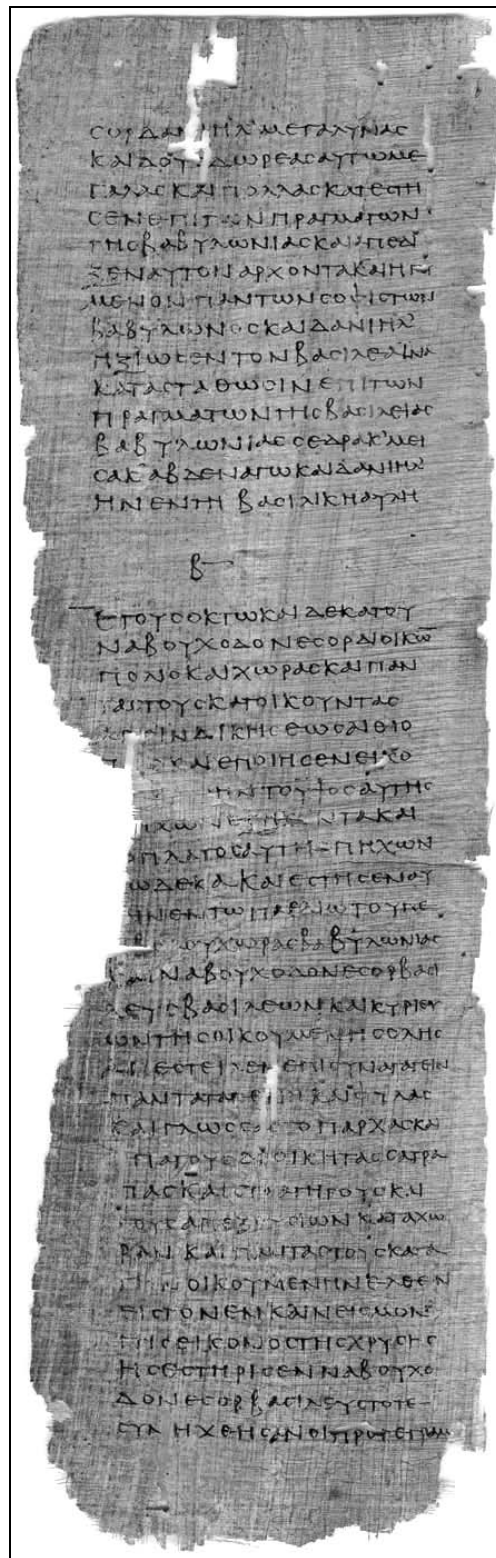 ϹΟΥΡΔΑΝΙΗΛ᾽ΜΕΓΑΛΥΝΑϹ
ΚΑΙΔΟΥϹΔΩΡΕΑϹΑΥΤΩΜΕ
ΓΑΛΑϹΚΑΙΠΟΛΛΑϹΚΑΤΕϹΤΗ
ϹΕΝΕΠΙΤΩΝΠΡΑΓΜΑΤΩΝ
ΤΗϹΒΑΒΥΛΩΝΙΑϹΚΑΙΑΠΕΔΙ
ΞΕΝΑΥΤΟΝΑΡΧΟΝΤΑΚΑΙΗΓΟΥ
ΜΕΝΟΝΠΑΝΤΩΝϹΟΦΙϹΤΩΝ
ΒΑΒΥΛΩΝΟϹΚΑΙΔΑΝΙΗΛ᾽
ΗΞΙΩϹΕΝΤΟΝΒΑϹΙΛΕΑΪΝΑ
ΚΑΤΑϹΤΑΘΩϹΙΝΕΠΙΤΩΝ
ΠΡΑΓΜΑΤΩΝΤΗϹΒΑϹΙΛΕΙΑϹ
ΒΑΒΥΛΩΝΙΑϹϹΕΔΡΑΚ᾽ΜΕΙ
ϹΑΚ᾽ΑΒΔΕΝΑΓΩΚΑΙΔΑΝΙΗΛ᾽
ΗΝΕΝΤΗΒΑϹΙΛΙΚΗΑΥΛΗ
Β
ΕΤΟΥϹΟΚΤΩΚΑΙΔΕΚΑΤΟΥ
ΝΑΒΟΥΧΟΔΟΝΕϹΟΡΔΙΟΙΚΩ̅
ΠΟΛΙϹΚΑΙΧΩΡΑϹΚΑΙΠΑΝ
ΤΑϹΤΟΥϹΚΑΤΟΙΚΟΥΝΤΑϹ
ΑΠΟΙΝΔΙΚΗϹΕΩϹΑΙΘΙΟ
ΕΠΟΙΗϹΕΝΕΙΚΟ
ΗΝΤΟΥΨΟϹΑΥΤΗϹ
ΝΤΑΚΑΙ
ΠΛΑΤΟϹΑΥΤΗϹΠΗΧΩΝ
ΩΔΕΚΑΚΑΙΕϹΤΗϹΕΝΑΥ
ΗΝΕΝΤΩΠΕΔΙΩΤΟΥΠΕ
ΟΥΧΩΡΑϹΒΑΒΥΛΩΝΙΑϹ
ΚΑΙΝΑΒΟΥΧΟΔΟΝΕϹΟΡΒΑϹΙ
ΛΕΥϹΒΑϹΙΛΕΩΝΚΑΙΚΥΡΙΕΥ
ΩΝΤΗϹΟΙΚΟΥΜΕΝΗϹΟΛΗϹ
ΑΠΕϹΤΕΙΛΕΝΕΠΙϹΥΝΑΓΑΓΕΙΝ
ΠΑΝΤΑΤΑΕΘΝΗΚΑΙΦΥΛΑϹ
ΚΑΙΓΛΩϹϹΑϹΤΟΠΑΡΧΑϹΚΑΙ
ΠΑΤΟΥϹΔΙΟΙΚΗΤΑϹϹΑΤΡΑ
ΠΑϹΚΑΙϹΤΡΑΤΗΓΟΥϹΚΑΙ
ΤΟΥϹΕΠΕΞΟΥϹΙΩΝΚΑΤΑΧΩ
ΡΑΝΚΑΙΠΑΝΤΑϹΤΟΥϹΚΑΤΑ
ΤΗΝΟΙΚΟΥΜΕΝΗΝΕΛΘΕΙΝ
ΕΙϹΤΟΝΕΝΚΑΙΝΕΙϹΜΟΝ
ΤΗϹΕΙΚΟΝΟϹΤΗϹΧΡΥϹΗϹ
ΗϹΕϹΤΗΡΙϹΕΝΝΑΒΟΥΧΟ
ΔΟΝΕϹΟΡΒΑϹΙΛΕΥϹΤΟΤΕ
ϹΥΝΗΧΘΗϹΑΝΟΙΠΡΟΓΕΓΡΑΜ